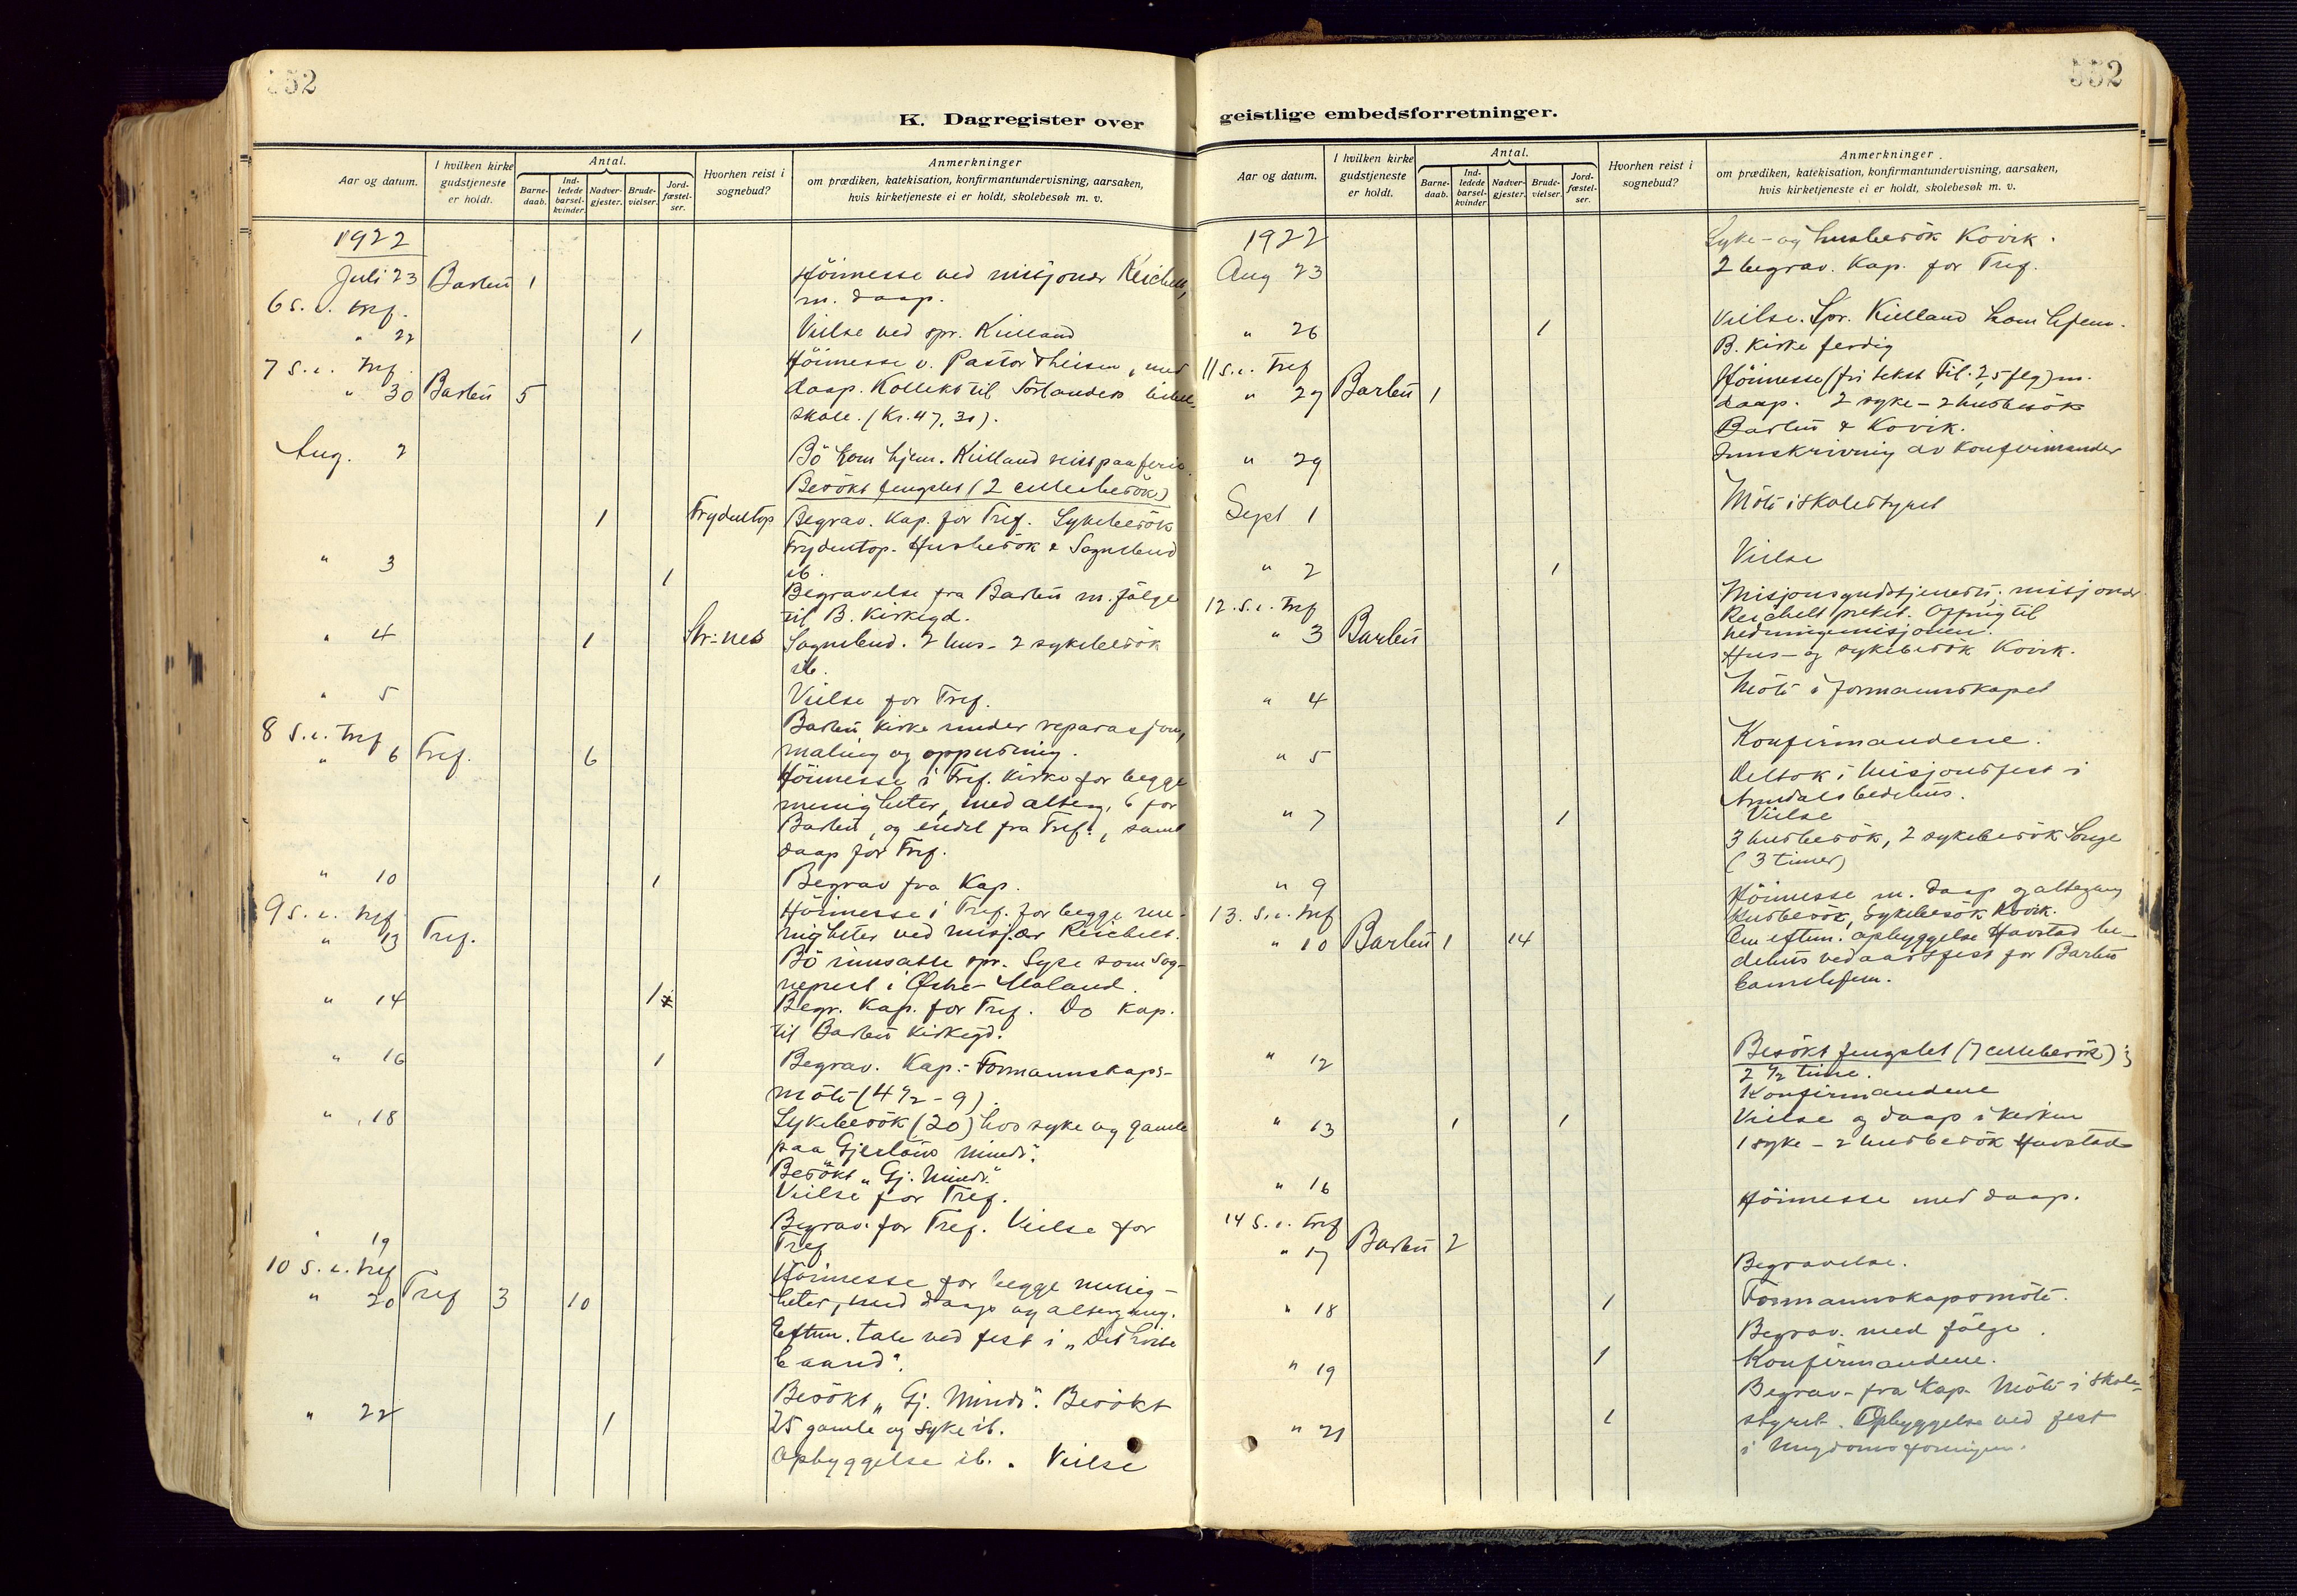 552
K. Dagregister over
Aar og datum.
I hvilken kirke
gudstjeneste
er holdt.
Antal.
Barne-
daab.
Ind-
ledede
barsel-
kvinder.
Nadver-
gjester.
Brude-
vielser.
Jord-
fæstel-
ser.
Hvorhen reist i
sognebud?
Anmerkninger
om prædiken, katekisation, konfirmantundervisning, aarsaken,
hvis kirketjeneste ei er holdt, skolebesøk m. v.
1922
Juli 23 Barbu 1 Höimesse ved misjonær Reichelt,
6 s. e. tref. m. daap.
" 22 1 Vielse ved spr. Kielland
7 s. e. tref. Höimesse v. Pastor Theisen, med
" 30 Barbu 5 daap. Kollekt til Sörlandets bibel-
skole. (Kr. 47,30).
Aug. 2 Bö kom hjem. Kielland reist paa ferie.
Besökt fengslet (2 cellebesök)
1 Frydentop Begrav. Kap. for Tref. Sykebesök
Frydentop. Husbesök & Sognebud
" 3 1 ib.
Begravelse fra Barbu m. fölge
til B. Kirkegd.
" 4 1 Str:nes Sognebud. 2 hus- 2 sykebesök
ib.
" 5 Vielse for Tref.
8 s. e. tref Barbu kirke under reparasjon,
" 6 Tref. 6 maling og oppudsning.
Höimesse i Tref. Kirke for begge
menigheter, med alterg., 6 for
Barbu, og endel fra Tref., samt
daap for Tref.
" 10 1 Begrav fra Kap.
9 s. e. tref. Höimesse i Tref. for begge me-
" 13 Tref. nigheter ved misj.ær Reichelt.
Bö innsatte spr. Syse som sog-
neprest i Östre-Moland.
" 14 1 Begr. Kap. for Tref. Do Kap.
til Barbu Kirkegd.
" 16 1 Begrav. Kap.- Formannskaps-
möte (4 1/2 - 9).
" 18 Sykebesök (20) hos syke og gamle
paa Gjeslöws minde".
Besökt "Gj. Minde"
Vielse for Tref.
" 19 Begrav. for Tref. Vielse for
Tref
10 s. e. tref Höimesse for begge menig-
" 20 Tref 3 10 heter, med daap og altergang.
Eftm. tale ved fest i "Det hvite
baand".
" 22 1 Besökt "Gj. Minde". Besökt
25 gamle og syke ib.
Opbyggelse ib. . Vielse
552
geistlige embedsforretninger.
Aar og datum.
I hvilken kirke
gudstjeneste
er holdt.
Antal.
Barne-
daab.
Ind-
ledede
barsel-
kvinder
Nadver-
gjester.
Brude-
vielser.
Jord-
fæstel-
ser.
Hvorhen reist i
sognebud?
Anmerkninger
om prædiken, katekisation, konfirmantundervisning, aarsaken,
hvis kirketjeneste ei er holdt, skolebesøk m. v.
1922 Syke- og husbesök Kovik.
Aug 23 2 begrav. Kap. for Tref.
" 26 1 Vielse. Spr. Kielland kom hjem.
B. Kirke ferdig
11 s. e. Tref Höimesse (fri tekst Fil. 2,5 flg) m.
" 27 Barbu 1 daap. 2 syke- 2 husbesök
Barbu & Kovik.
" 29 Innskrivning av konfirmander
Sept 1 Möte i skolestyret
" 2 1 Vielse
12. s. e. tref Misjonsgudstjeneste. misjonær
Reichelt preket. Ofring til
" 3 Barbu hedningemisjonen.
Hus- og sykebesök Kovik.
" 4 Möte i formannskapet
" 5 Konfirmandene.
Deltok i misjonsfest i
Arendals bedehus.
" 7 1 Vielse
3 husbesök, 2 sykebesök Songe
(3 timer)
" 9
13. s. e. tref Höimesse m. daap og altergang
" 10 Barbu 1 14 Husbesök, Sykebesök Kovik.
Om eftm. opbyggelse Havstad be-
dehus ved aarsfest for Barbu
barnehjem.
" 12 Besökt fengslet (7 cellebesök);
2 1/2 time.
Konfirmandene
" 13 1 1 Vielse og daap i kirken
1 syke- 2 husbesök Havstad
" 16
14 s. e. tref Höimesse med daap.
" 17 Barbu 2
Begravelse.
" 18 1 Formannskapsmöte.
Begrav. med fölge.
" 19 1 Konfirmandene.
Begrav- fra Kap. Möte i skole-
" 21 1 styret. Opbyggelse ved fest
i Ungdomsforeningen.